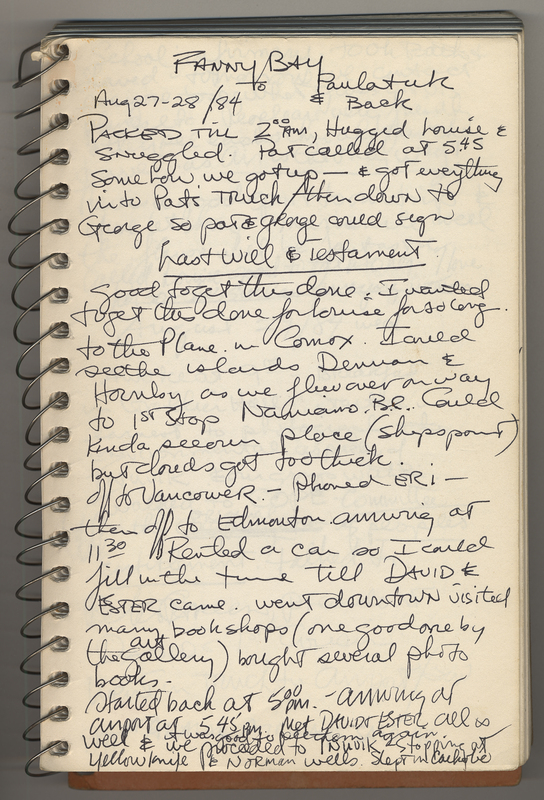 FANNY BAY
to Paulatuk
Aug 27-28/84 & Back
PACKED Till 2⁰⁰ AM, Hugged Louise &
snuggled. Pat called at 5⁴⁵
somehow we got up — & got everything
into Pats Truck / then down to
George so pat & george could sign
Last Will & Testament.
Good to get this done. I wanted
to get this done for Louise for so long.
to the Plane in Comox. I could
see the islands Denman &
Hornby as we flew over on way
to 1ST STOP Naniamo. B.C. Could
kinda see our place (shipspoint)
but clouds got too thick.
off to Vancouver. - phoned ERi -
then off to Edmonton. arriving at
11³⁰ Rented a car so I could
fill in the time till DAVID &
ESTER came. went downtown visited
many bookshops (one good one by
the art gallery) bought several photo
books.
Started back at 5⁰⁰ pm. - arriving at
airport at 5 45 pm. Met DAVID ESTER all so
well & it was good to see them again.
& we proceeded to INUVIK 2 stopping at
Yellowknife & NORMAN wells. Slept in